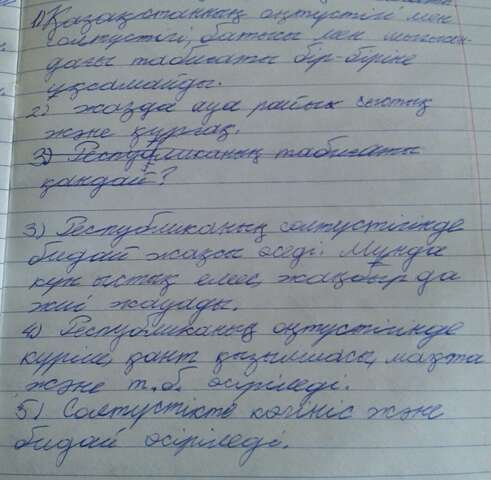 1) Қазақстанның оңтүстігі мен
солтүстігі, батысы мен шығыс
дағы табиғаты бір-біріне
ұқсамайды.
2) жазда ауа райы ыстық
және құрғақ.
3) Республиканың табиғаты
қандай?
3) Республиканың солтүстігінде
бидай жақсы өседі. Мұнда
күн ыстық емес, жаңбыр да
жиі жауады.
4) Республиканың оңтүстігінде
күріш, қант қызылшасы, мақта
және т.б. өсіріледі.
5) Солтүстікте көкөніс және
бидай өсіріледі.